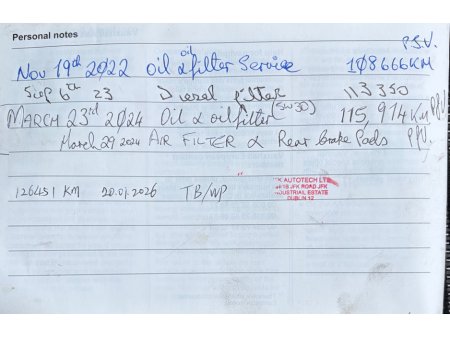 Personal notes
P.S.V.
Nov 19th 2022 oil & oil filter Service 108666KM
Sep 6th 23 Diesel filter 113350
MARCH 23rd 2024 Oil & oil filter (5W30) 115,914 Km PPV
March 29 2024 AIR FILTER & Rear brake Pads PPV.
126451 KM 20.01.2026 TB/WP
K AUTOTECH LTD
JFK ROAD JFK
INDUSTRIAL ESTATE
DUBLIN 12